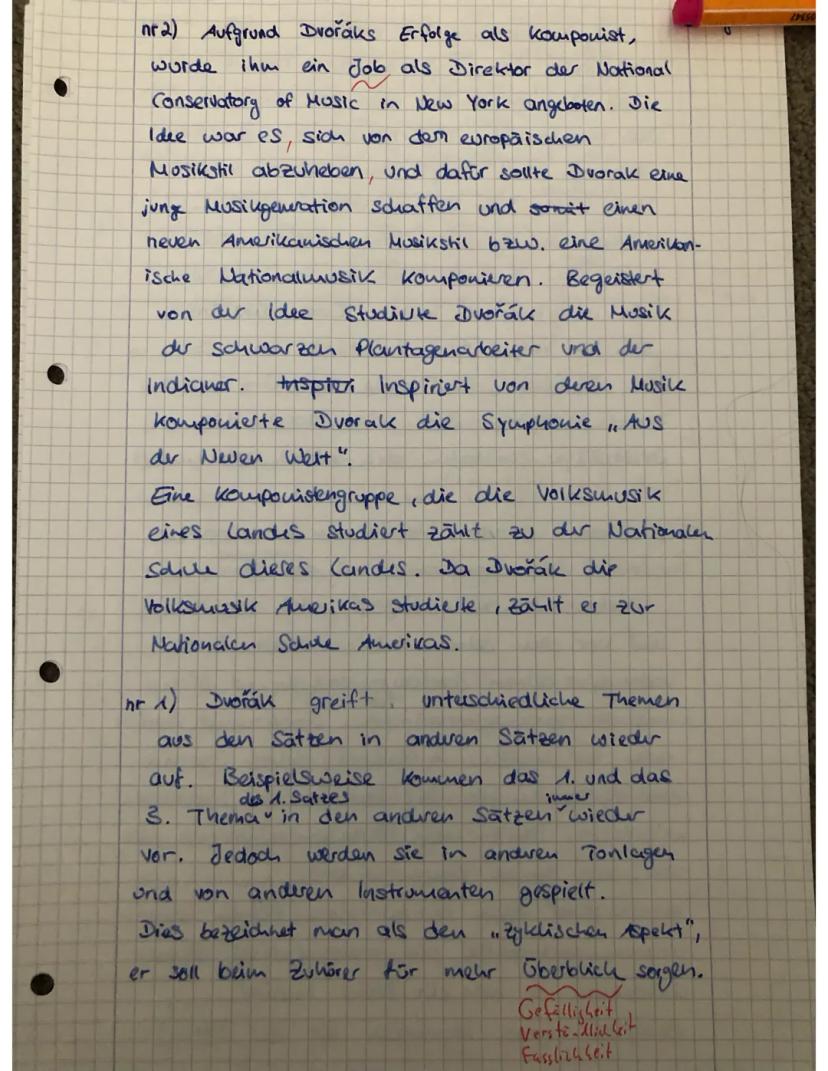 nr 2) Aufgrund Dvořáks Erfolge als Komponist,
wurde ihm ein Job als Direktor der National
Conservatory of Music in New York angeboten. Die
Idee war es, sich von dem europäischen
Musikstil abzuheben, und dafür sollte Dvorak eine
junge Musikgeneration schaffen und somit einen
neuen Amerikanischen Musikstil bzw. eine Amerikan-
ische Nationalmusik komponieren. Begeistert
von der Idee studierte Dvořák die Musik
der schwarzen Plantagenarbeiter und der
Indianer. Inspiriert von deren Musik
komponierte Dvorak die Symphonie „Aus
der Neuen Welt".
Eine Komponistengruppe, die die Volksmusik
eines Landes studiert zählt zu der Nationalen
Schule dieses Landes. Da Dvořák die
Volksmusik Amerikas studierte, zählt er zur
Nationalen Schule Amerikas.
nr 1) Dvořák greift unterschiedliche Themen
aus den Sätzen in anderen Sätzen wieder
auf. Beispielsweise kommen das 1. und das
des 1. Satzes immer
3. Thema in den anderen Sätzen wieder
vor. Jedoch werden sie in anderen Tonlagen
und von anderen Instrumenten gespielt.
Dies bezeichnet man als den „zyklischen Aspekt",
er soll beim Zuhörer für mehr Überblick sorgen.
Gefälligkeit
Verständlichkeit
Fasslichkeit